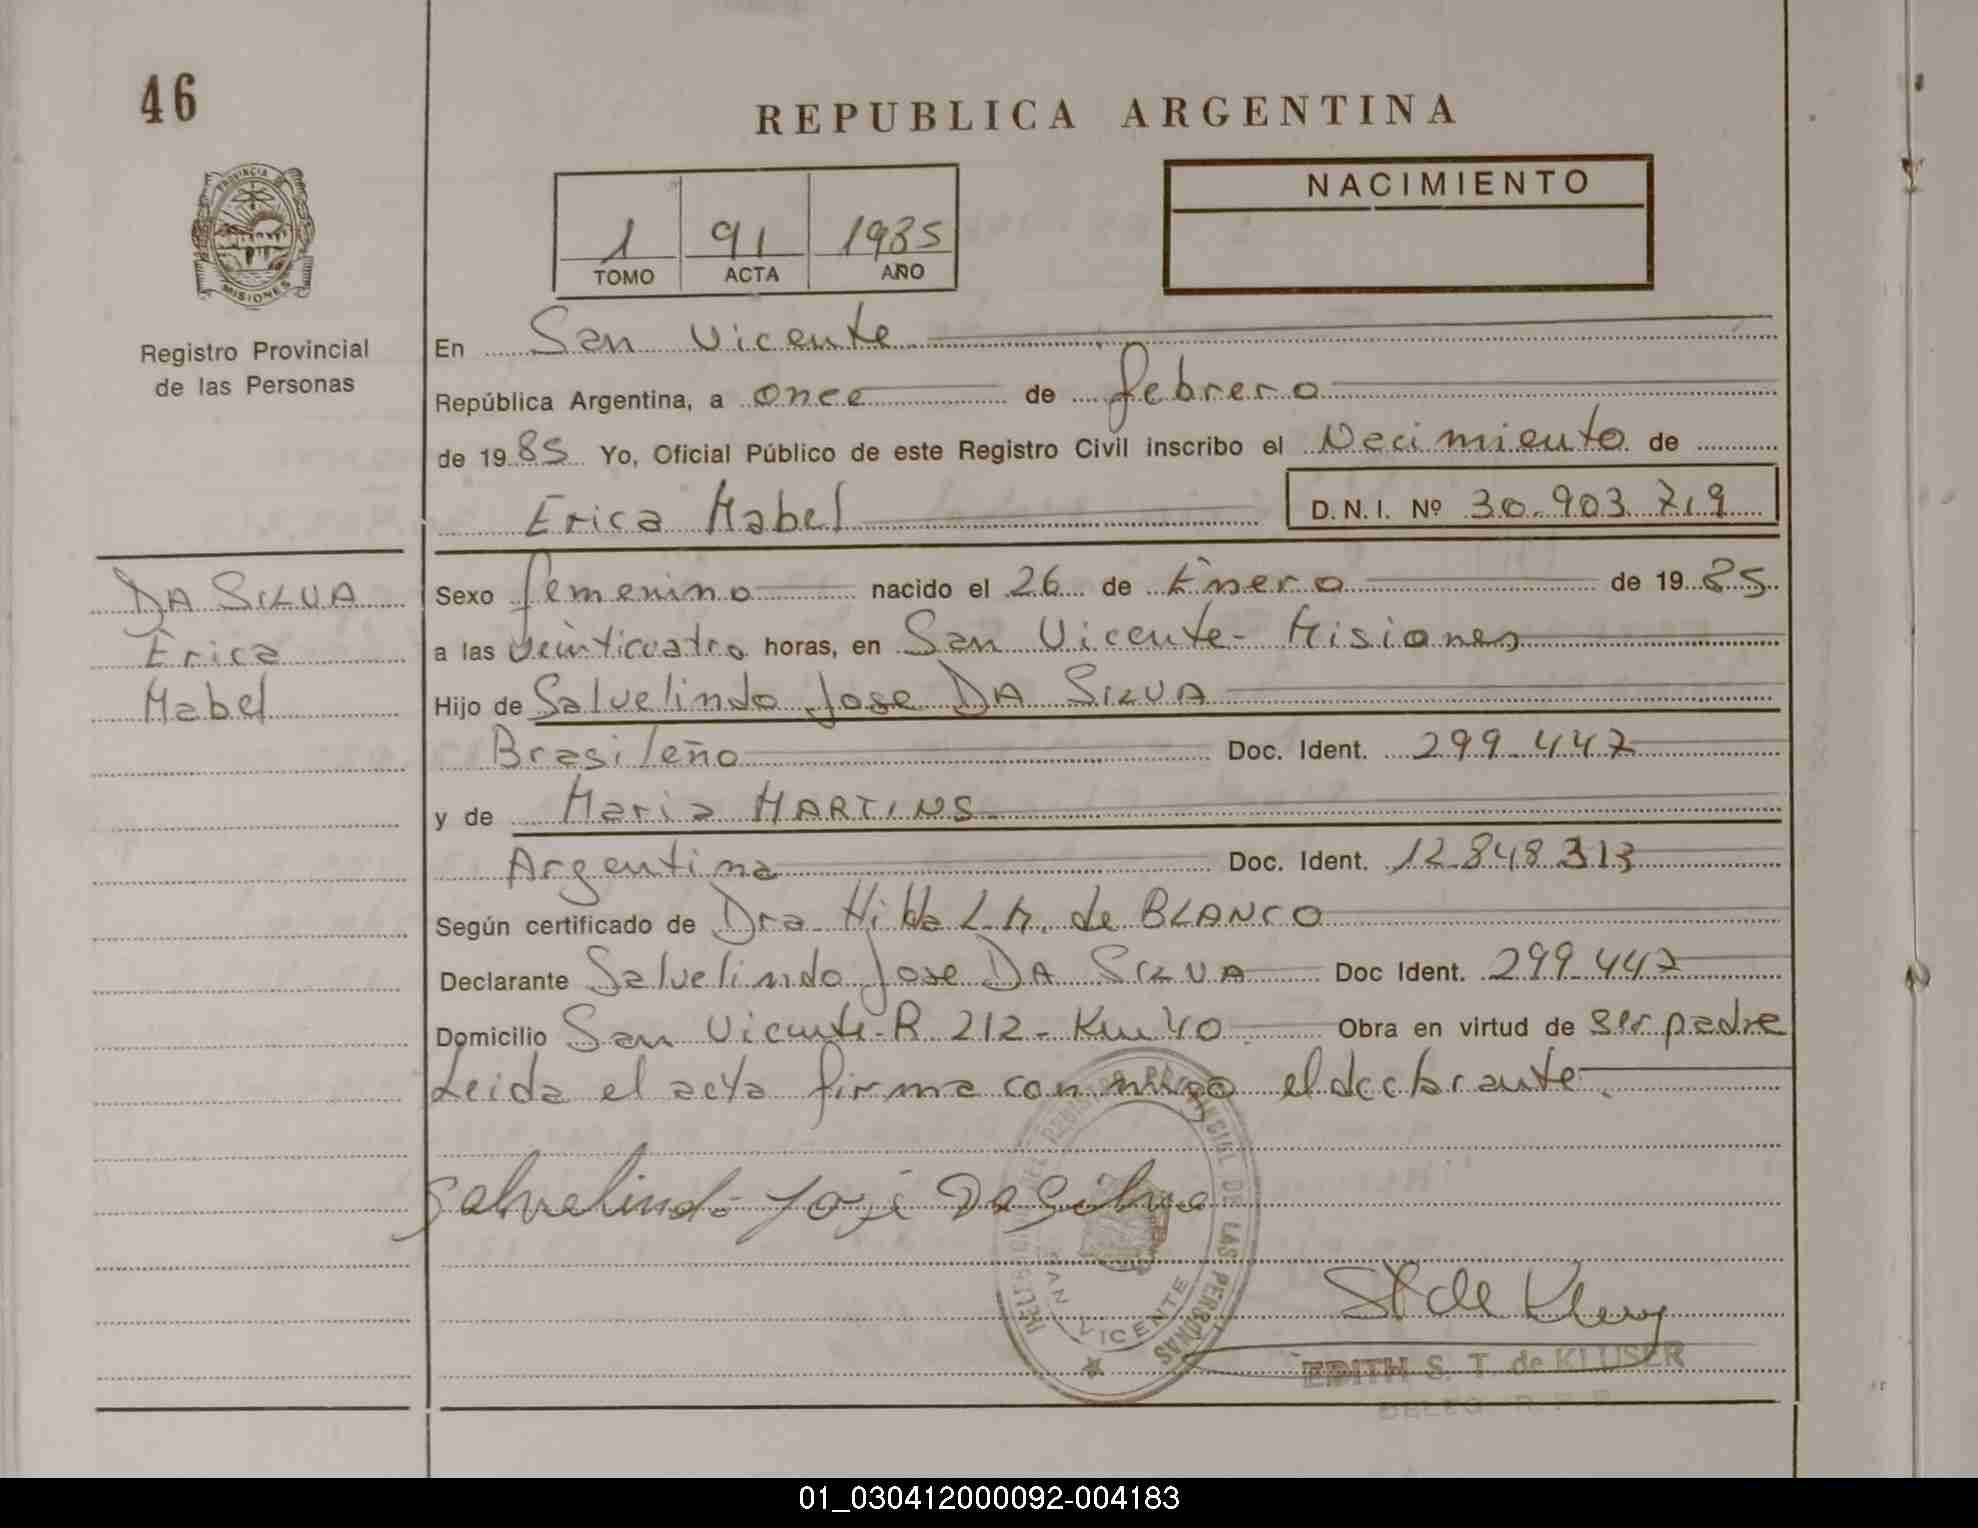 46
REPUBLICA ARGENTINA
PROVINCIA DE
MISIONES
Registro Provincial
de las Personas
1 91 1985
TOMO ACTA AÑO
NACIMIENTO
En San Vicente
República Argentina, a once de febrero
de 1985 Yo, Oficial Público de este Registro Civil inscribo el Nacimiento de
Erica Mabel D.N.I. Nº 30.903.719
DA SILVA
Erica
Mabel
Sexo femenino nacido el 26 de Enero de 1985
a las veinticuatro horas, en San Vicente - Misiones
Hijo de Salvelindo Jose DA SILVA
Brasileño Doc. Ident. 299.447
y de Maria MARTINS
Argentina Doc. Ident. 12.848.313
Según certificado de Dra. Hilda L.M. de BLANCO
Declarante Salvelindo Jose DA SILVA Doc Ident. 299.447
Domicilio San Vicente - R. 212 - Km 40 Obra en virtud de ser padre
Leida el acta firma conmigo el declarante
Salvelindo José Da Silva
REGISTRO PROVINCIAL DE LAS PERSONAS
SAN VICENTE
EDITH S. T. de KLUSER
DELEG. R. P. P.
01_030412000092-004183